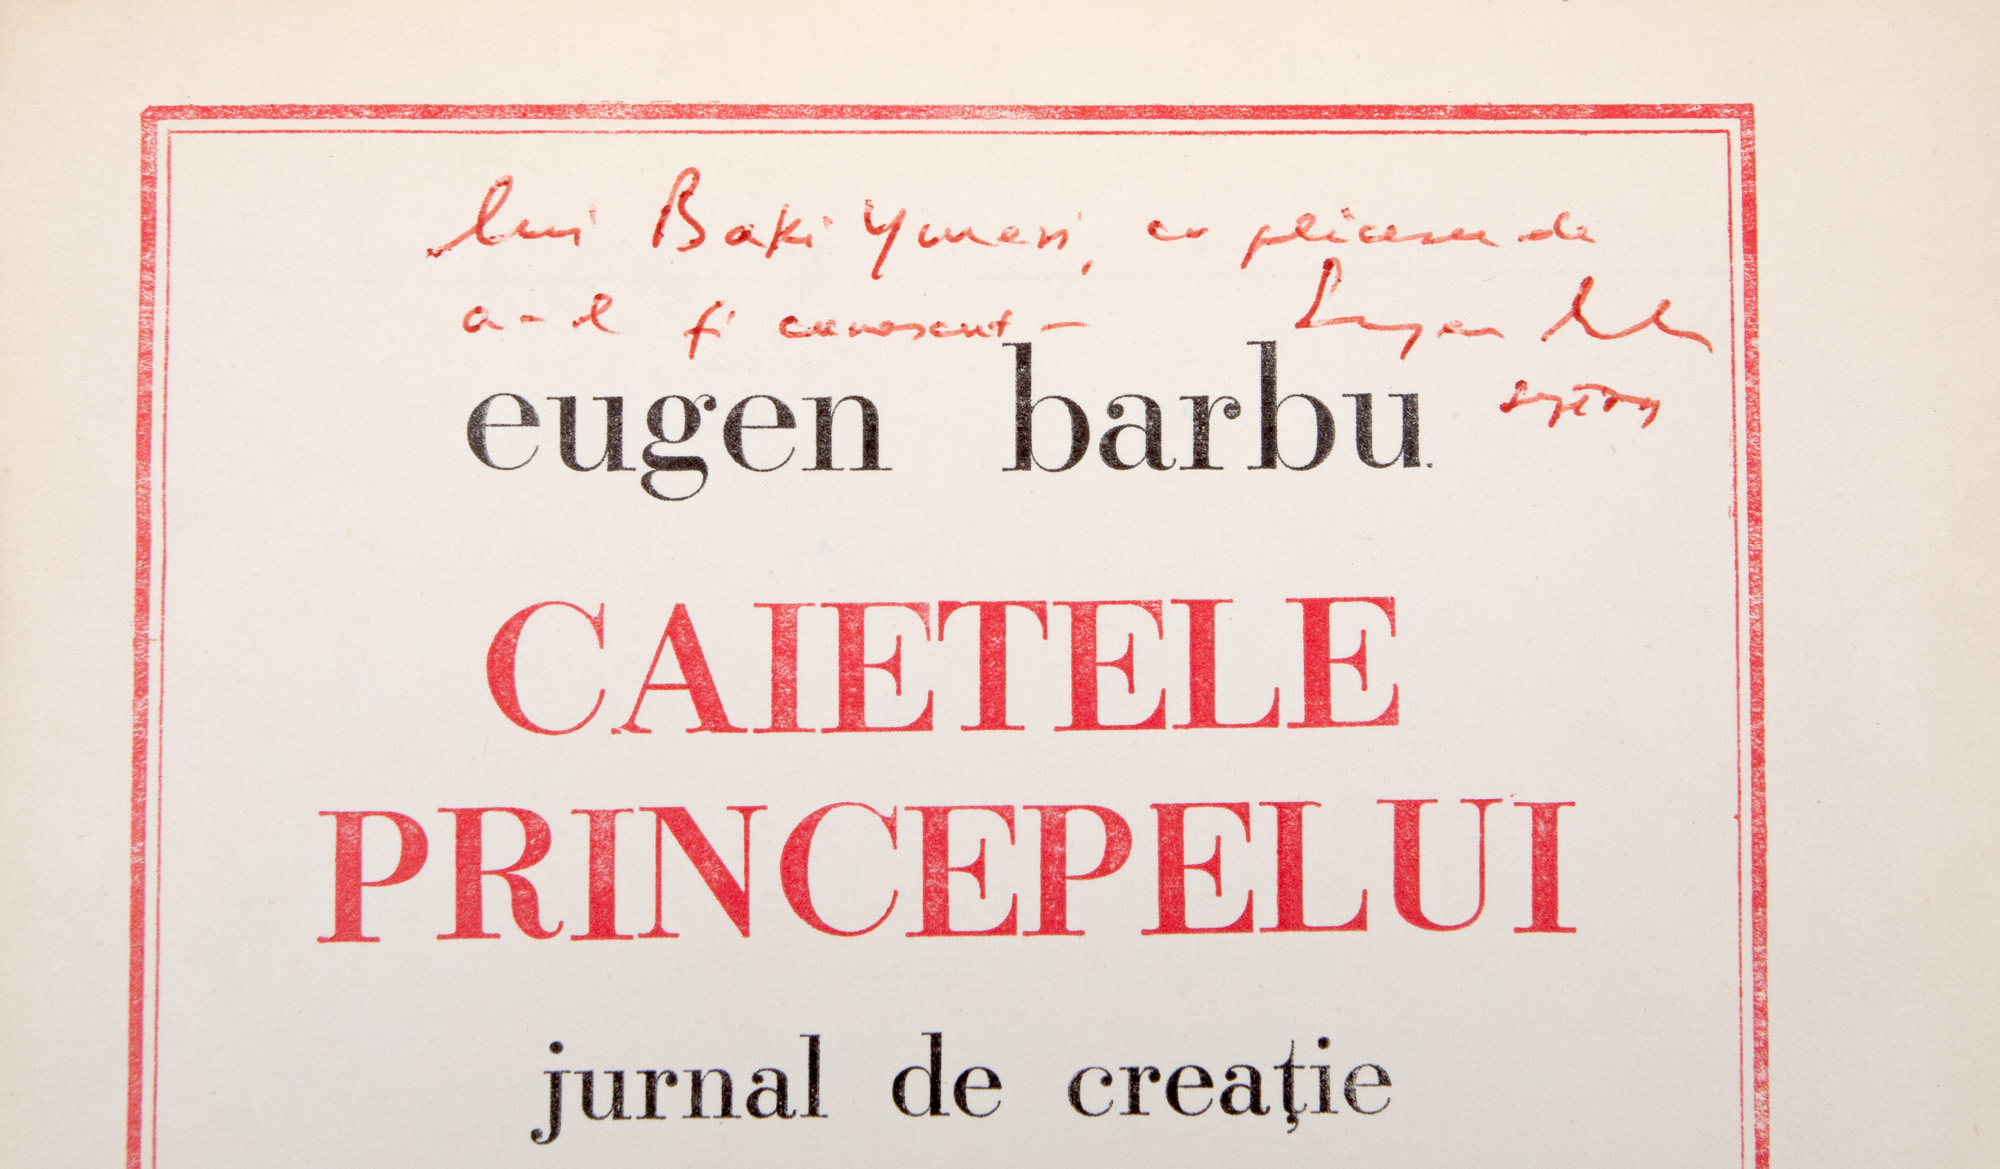 lui Baki Ymeri, cu plăcerea de
a-l fi cunoscut – Eugen Barbu
eugen barbu
CAIETELE
PRINCEPELUI
jurnal de creație